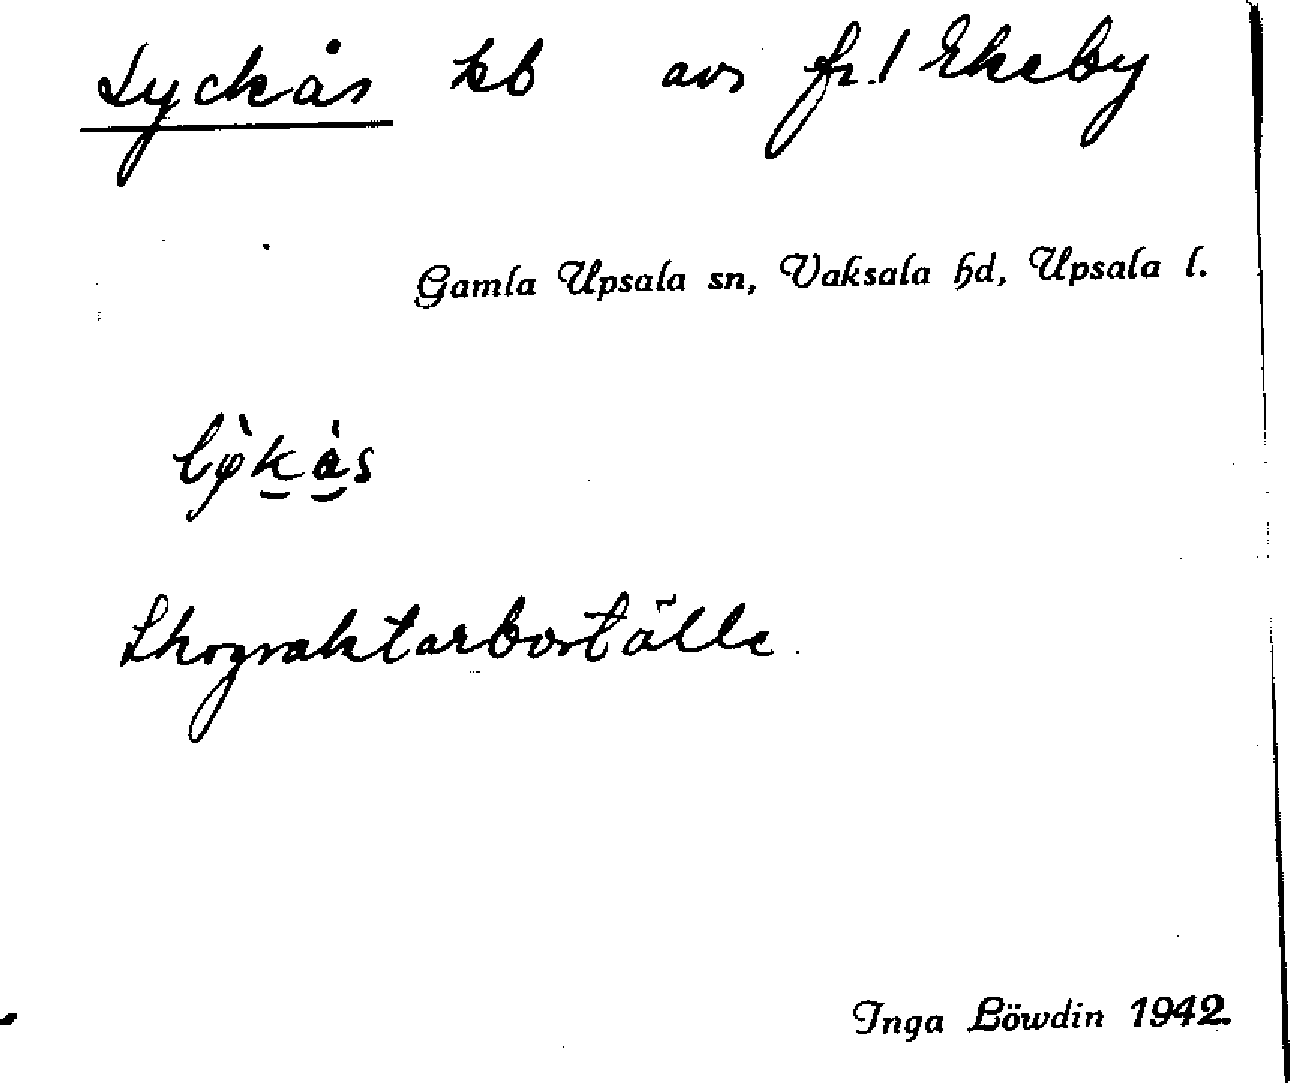 Lyckås hb avs fr. 1 Ekeby
Gamla Upsala sn, Vaksala hd, Upsala l.
Skogvaktarboställe
Inga Löwdin 1942.